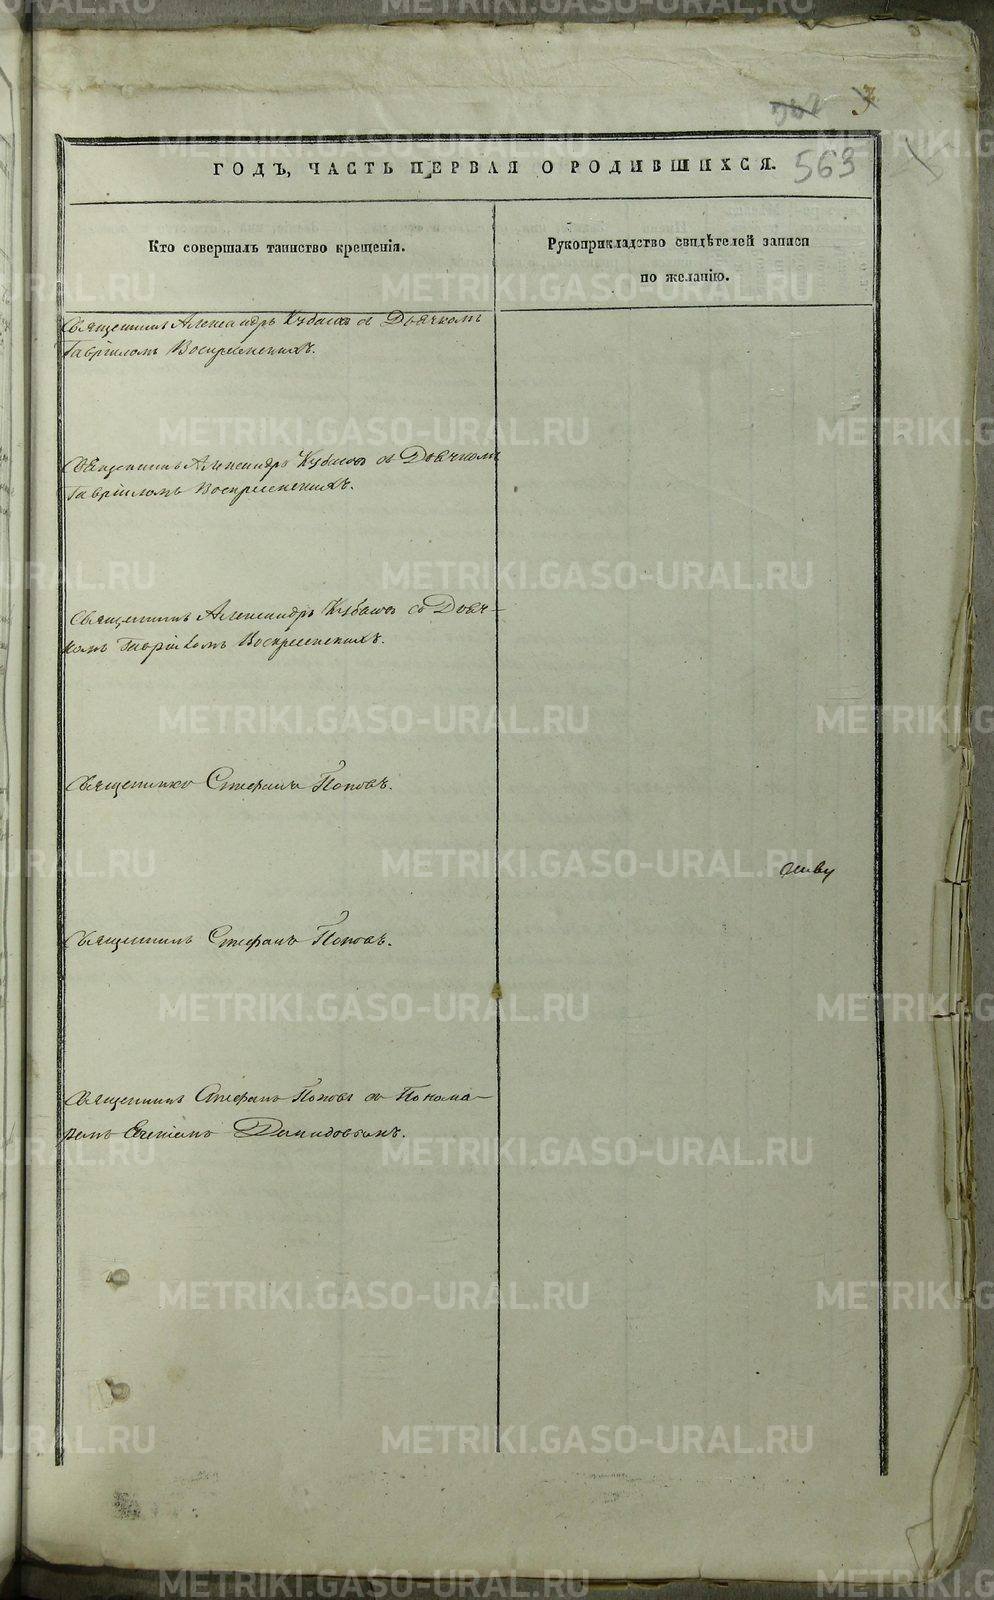 563
ГОДЪ, ЧАСТЬ ПЕРВАЯ О РОДИВШИХСЯ.
Кто совершалъ таинство крещенія.
Рукоприкладство свидѣтелей записи
по желанію.
Священникъ Александръ Кубасовъ съ Дьячкомъ
Гавріиломъ Воскресенскихъ.
Священникъ Александръ Кубасовъ съ Дьячкомъ
Гавріиломъ Воскресенскихъ.
Священникъ Александръ Кубасовъ съ Дьяч-
комъ Гавріиломъ Воскресенскихъ.
Священникъ Стефанъ Поповъ.
Священникъ Стефанъ Поповъ.
Священникъ Стефанъ Поповъ съ Понома-
ремъ Демидовымъ.
METRIKI.GASO-URAL.RU